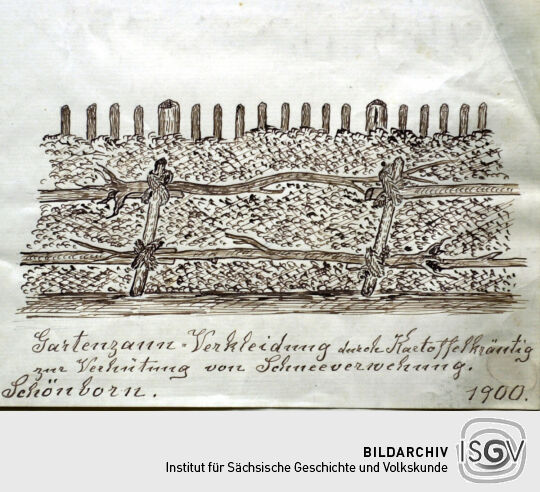 Gartenzaun-Verkleidung durch Kartoffelkräutig
zur Verhütung von Schneeverwehung.
Schönborn. 1900.
BILDARCHIV
Institut für Sächsische Geschichte und Volkskunde
ISGV